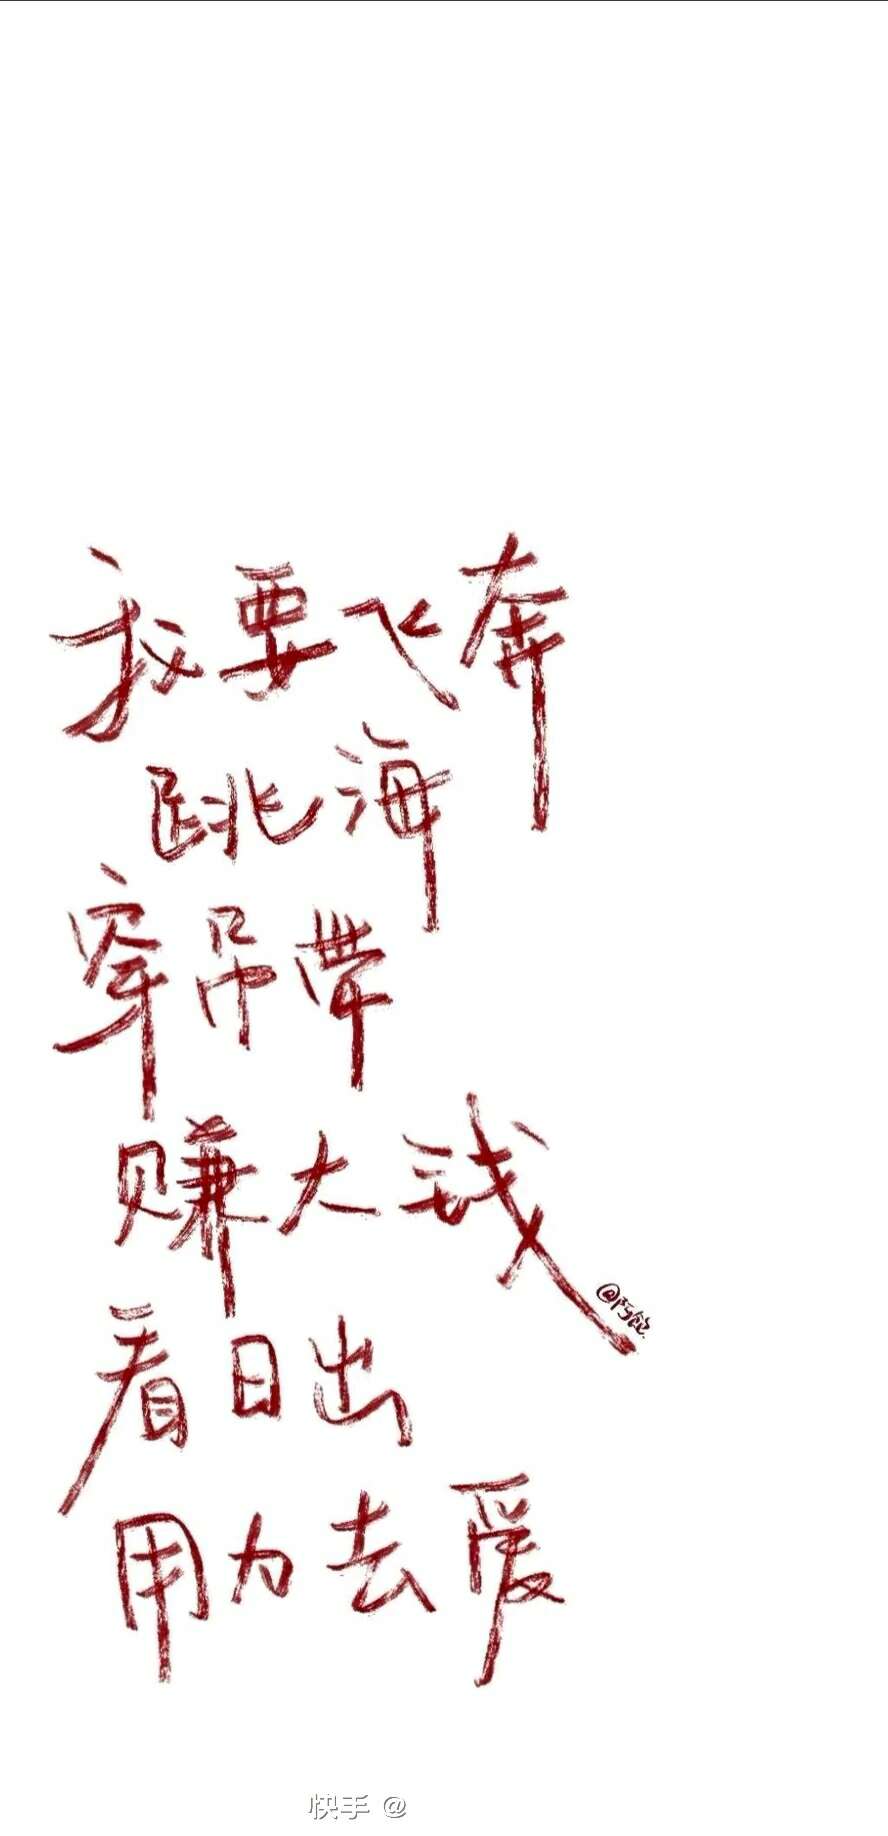 我要飞奔
跳海
穿吊带
赚大钱
看日出
用力去爱
快手 @